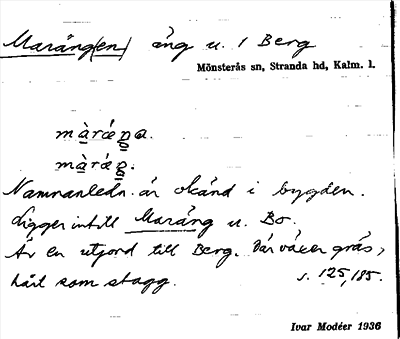 Maräng(en) äng u. 1 Berg
Mönsterås sn, Stranda hd, Kalm. l.
màräŋa.
màräŋ.
Namnanledn. är okänd i bygden.
Ligger intill Maräng u. Bo.
Är en utjord till Berg. Där växer gräs,
hårt som stagg. s. 125, 185.
Ivar Modéer 1936